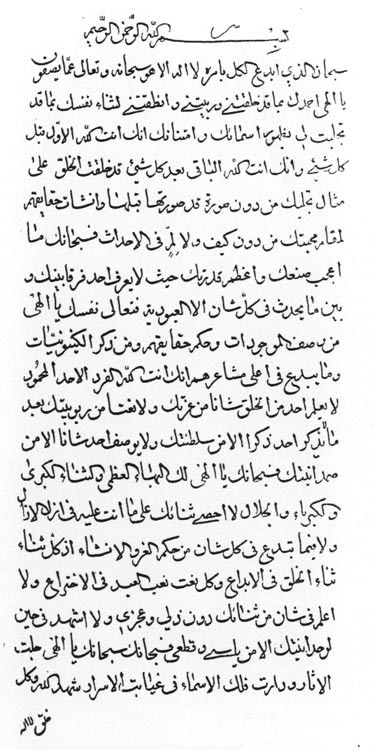 بسم الله الرحمن الرحيم
سبحان الذي ابدع الكل بامره لا اله الا هو سبحانه وتعالى عما يصفون
يا الهي احمدك بما قد خلقتني وربيتني وانطقتني لثناء نفسك بما قد
تجليت لي بظهور اسمائك وامتنانك انك انت الله الاول قبل
كل شيء وانك انت الله الباقي بعد كل شيء قد خلقت الخلق على
مثال تجليك من دون صورة قد صورتها قبلها وانشات حقايقهم
لمقام محبتك من دون كيف ولا لم في الاحداث فسبحانك ما
اعجب صنعك واعظم قدرتك حيث لا يعرف احد فرقا بينك و
بين ما يحدث في كل شان الا العبودية فتعالى نفسك يا الهي
من وصف الموجودات وحكم حقايقهم ومن ذكر الكينونيات
وما يبدع في اعلى مشاعرهم انك انت الله الفرد الاحد المحمود
لا يعلم احد من الخلق شانا من عزتك ولا نعتا من ربوبيتك بعد
ما لا يذكر احد ذكرا الا من سلطنتك ولا يوصف احد شانا الا من
صمدانيتك فسبحانك يا الهي لك البهاء العظمى والثناء الكبرى
والكبرياء والجلال لا احصي ثنائك على ما انت عليه في ازل الازال
ولا فيما تبدع في كل شان من حكم الانشاء اذ كل ثناء
ثناء الخلق في الابداع وكل نعت نعت العبد في الاختراع ولا
اعلم في شان من ثنائك دون ذلي وعجزي ولا اشهد في حين
لوحدانيتك الا من ياسي وقطعي فسبحانك سبحانك يا الهي جلت
الاثار ودارت فلك الاسماء في غيابت الاسرار شهد الله وكل